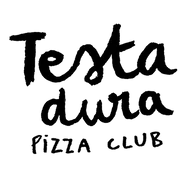 Testa
dura
PIZZA CLUB